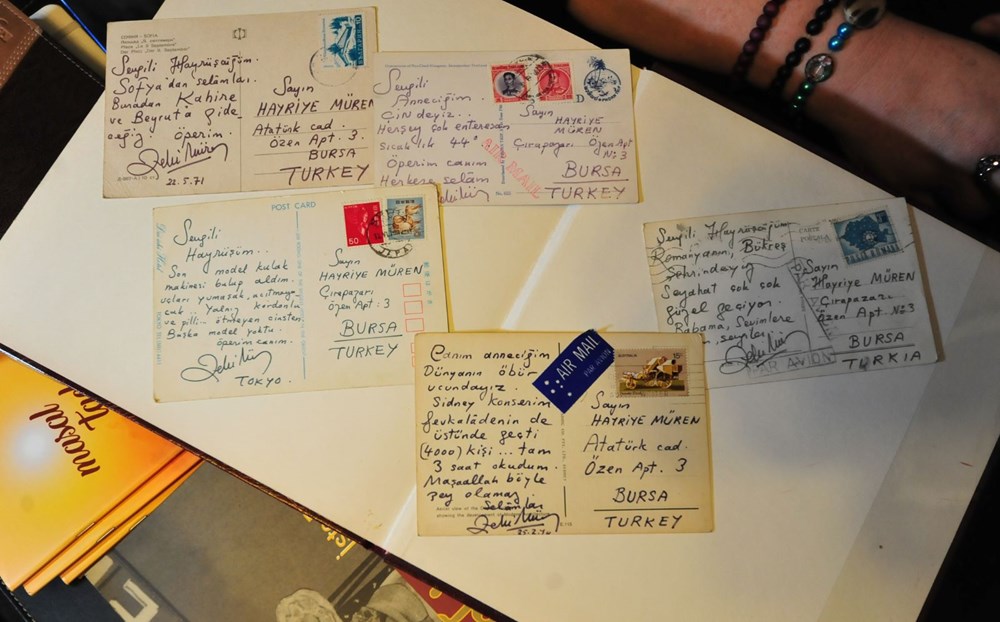 Sevgili Hayrüşüğüm.
Sofya'dan selâmlar.
Buradan Kahire
ve Beyrut'a gide-
ceğiz. Öperim.
Zeki Müren
22.5.71
Sayın
HAYRİYE MÜREN
Atatürk cad.
Özen Apt. 3
BURSA
TURKEY
Sevgili
Anneciğim.
Çin'deyiz..
Herşey çok enteresan
Sıcaklık 44°
Öperim canım
Herkese selâm
Zeki Müren
AIR MAIL
D
Sayın
HAYRİYE
MÜREN
Çırapazarı Özen Apt
No: 3
BURSA
TURKEY
POST CARD
Sevgili
Hayrüşüm..
Son model kulak
makinesi bulup aldım.
uçları yumuşak, acıtmaya-
cak.. Yalnız kordonlu
ve pilli.. ötmeyen cinsten.
Başka model yoktu.
Öperim canım.
Zeki Müren
TOKYO.
50
Sayın
HAYRİYE MÜREN
Çırapazarı
Özen Apt: 3
BURSA
TURKEY
Sevgili Hayrüşüğüm
Romanyanın, Bükreş
Şehrindeyiz
Seyahat çok çok
güzel geçiyor.
Babama, Sevimlere
Zeki Müren
PAR AVION
Sayın
Hayriye MÜREN
Çırapazarı
Özen Apt. No: 3
BURSA
TURKIA
Canım anneciğim
Dünyanın öbür
ucundayız.
Sidney konserim
fevkalâdenin de
üstünde geçti
(4000) kişi... tam
3 saat okudum.
Maşaallah böyle
şey olamaz.
Selâmlar
Zeki Müren
AIR MAIL
PAR AVION
AUSTRALIA
15c
Sayın
HAYRİYE MÜREN
Atatürk cad.
Özen Apt. 3
BURSA
TURKEY
masal